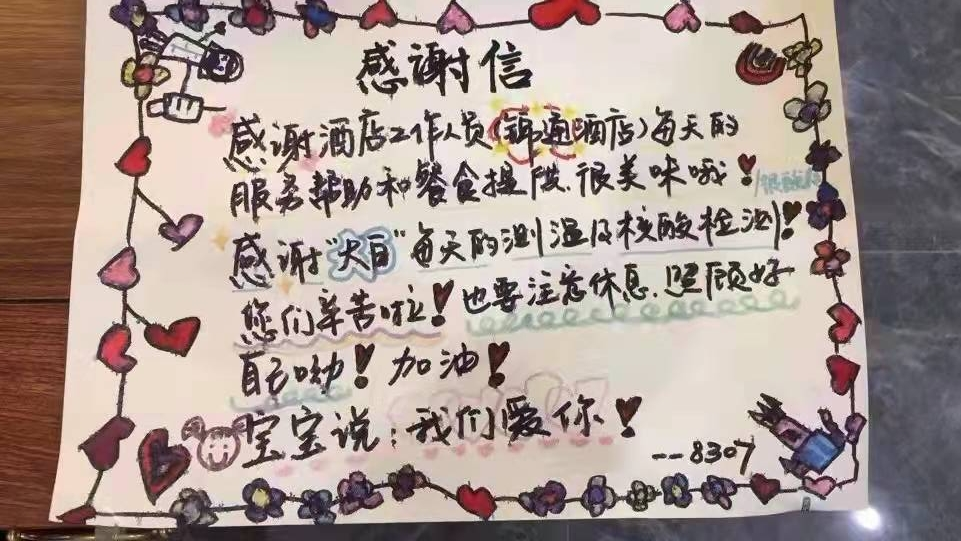 感谢信
感谢酒店工作人员(锦通酒店)每天的
服务帮助和餐食提供.很美味哦!
感谢"大白"每天的测温及核酸检测!
您们辛苦啦!也要注意休息.照顾好
自己呦!加油!
宝宝说:我们爱你!
--8307